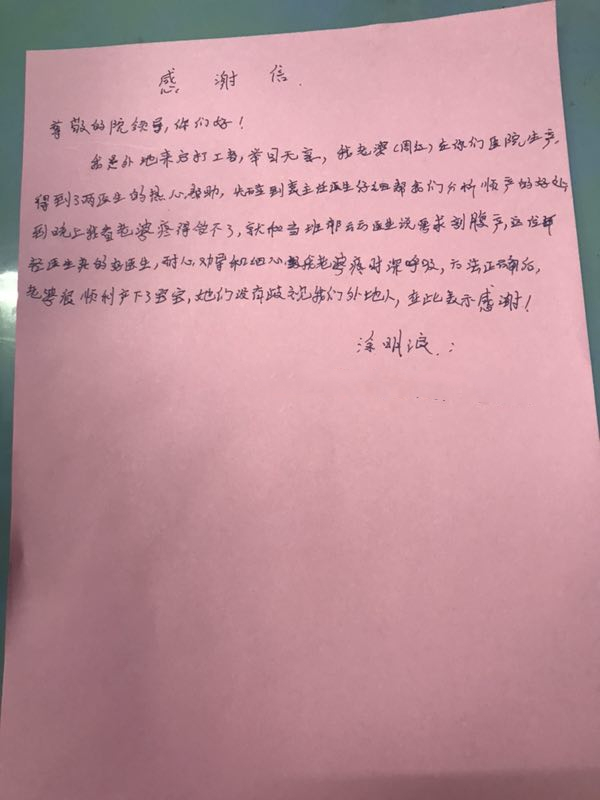 感谢信
尊敬的院领导,你们好!
我是外地来启打工者,举目无亲,我老婆(周红)在你们医院生产,
得到了两医生的热心帮助,先碰到袁主任医生仔细帮我们分析顺产的好处
到晚上我看老婆疼得餐不了,就和当班郁云云医生说要求剖腹产,这位年
轻医生真的好医生,耐心劝导和细心 老婆疼时深呼吸,方法正确后,
老婆很顺利产下了宝宝,她们没有歧视我们外地人,在此表示感谢!
涂明浪